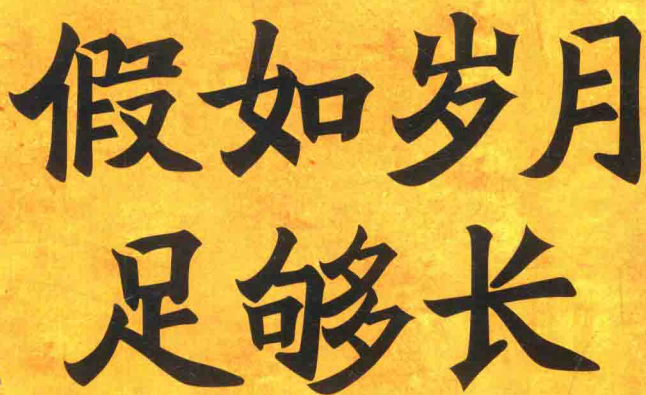 假如岁月
足够长